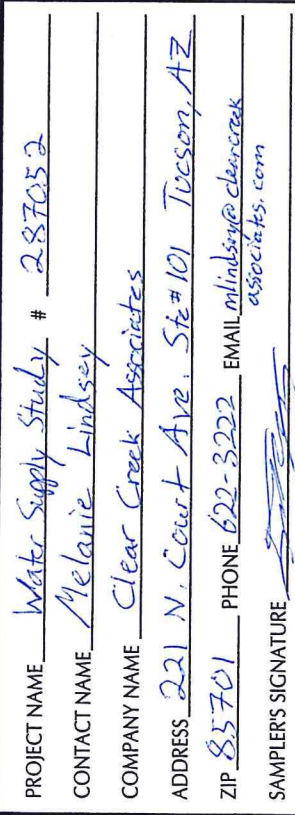 PROJECT NAME Water Supply Study # 287052
CONTACT NAME Melanie Lindsey
COMPANY NAME Clear Creek Associates
ADDRESS 221 N. Court Ave. Ste # 101 Tucson, AZ
ZIP 85701 PHONE 622-3222 EMAIL mlindsey@clearcreek
associates.com
SAMPLER'S SIGNATURE